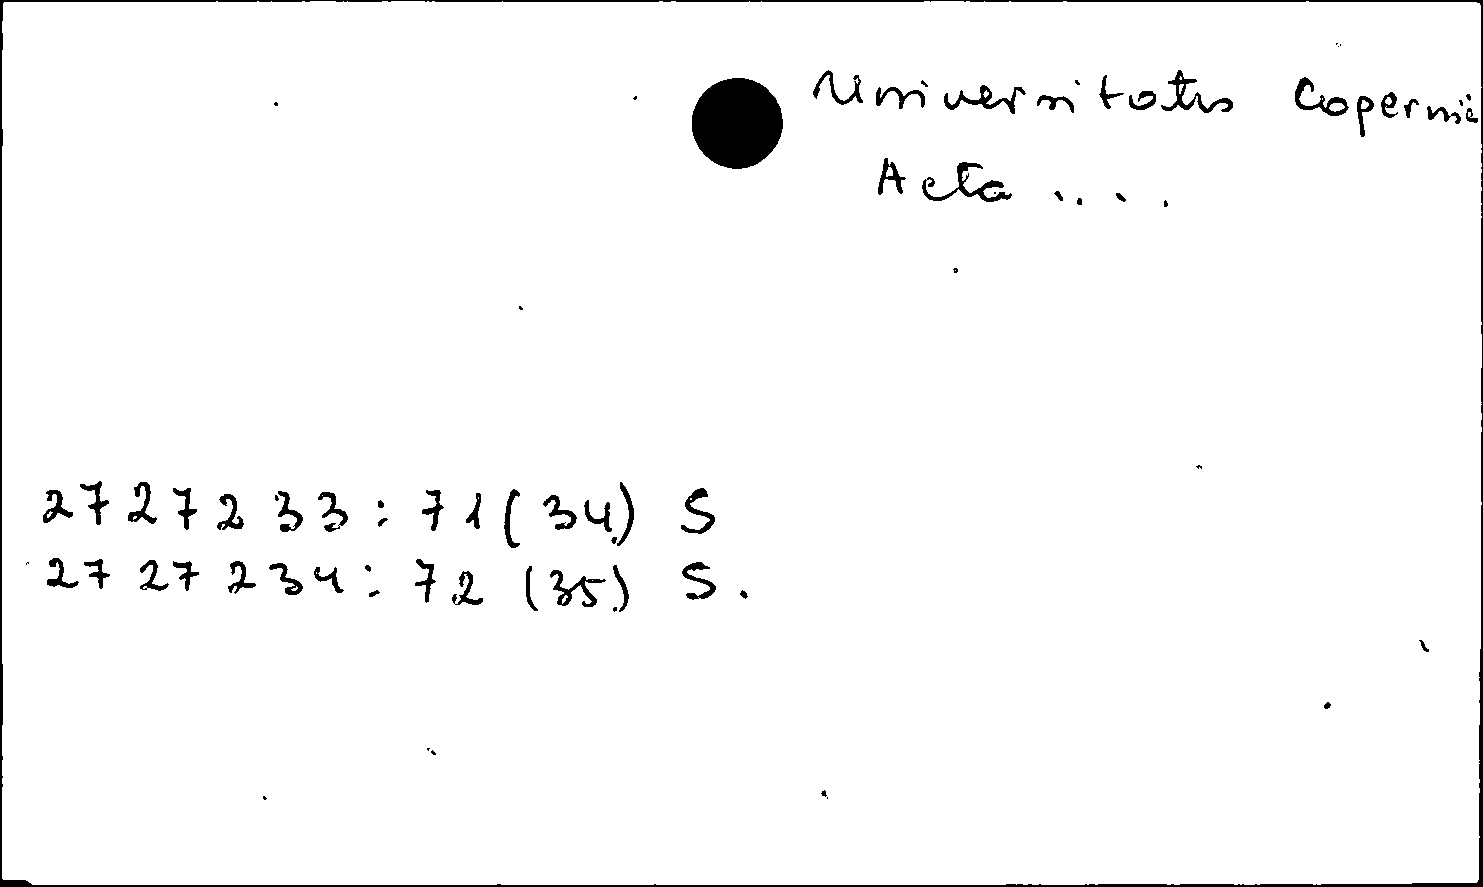 Universitatis Coperni
Acta ....
2727233: 71(34) S
2727234: 72 (35) S.